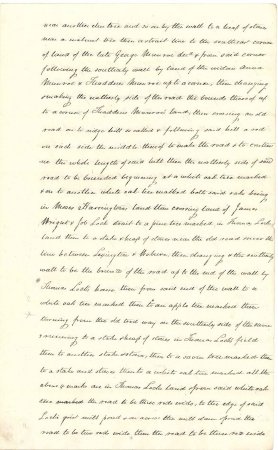 near another stone and so on by the wall to a heap of stones
near a walnut tree then a strait line to the southeast corner
of land of the late George Munroe decd & from said corner
following the southerly wall by land of the widow Anna
Munroe & Thaddeus Munroe up to a corner, then changing
& making the northerly side of the road the bounds thereof up
to a corner of Thaddeus Munroes land, then crossing an old
road on to ridge hill so called & following said hill a rod
on each side the middle thereof to make the road & to continue
so the whole length of said hill then the northerly side of said
road to be bounded beginning at a white oak tree marked
on to another white oak tree marked both said oaks being
in Moses Harringtons land then crossing land of James
Wright & Job Lock strait to a pine tree marked in Thomas Locks
land then to a stake & heap of stones near the old road near the
line between Lexington & Woburn then changing & the southerly
wall to be the bounds of the road up to the end of the wall by
Thomas Locks house then from said end of the wall to a
white oak tree marked then to an apple tree marked then
turning from the old road way on the northerly side of the same
& running to a stake & heap of stones in Thomas Locks field
then to another stake & stones, then to a tree marked then
to a stake and stones then to a white oak tree marked all the
above marks are in Thomas Locks land & from said white oak
tree marked the road to be three rods wide, to the edge of said
Locks grist mill pond & on over the mill dam & pond the
road to be two rods wide then the road to be three rods wide